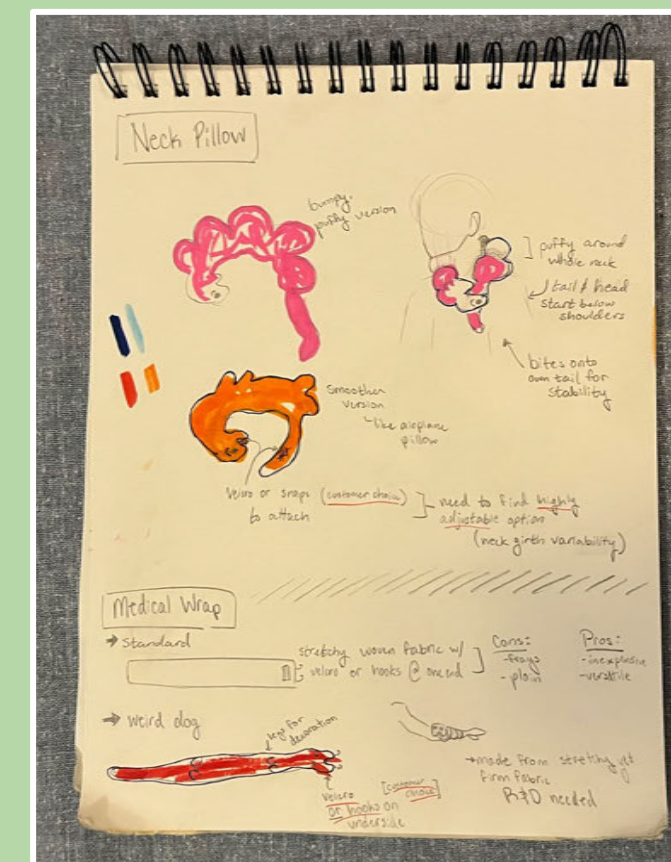 Neck Pillow
bumpy,
puffy version
puffy around
whole neck
tail & head
start below
shoulders
bites onto
own tail for
stability
smoother
version
like airplane
pillow
Velcro or snaps (customer choice)
to attach
need to find highly
adjustable option
(neck girth variability)
Medical Wrap
→ standard
stretchy woven fabric w/
velcro or hooks @ one end
Cons:
- frays
- plain
Pros:
- inexpensive
- versatile
→ weird dog
legs for
decoration
velcro
or hooks on
underside
[customer
choice]
→ made from stretchy yet
firm fabric
R&D needed